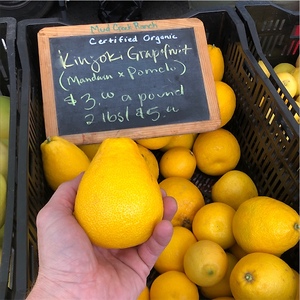 Mud Creek Ranch
Certified Organic
Kinjoki Grapefruit
(Mandarin x Pomelo)
$3.00 a pound
2 lbs/$5.00